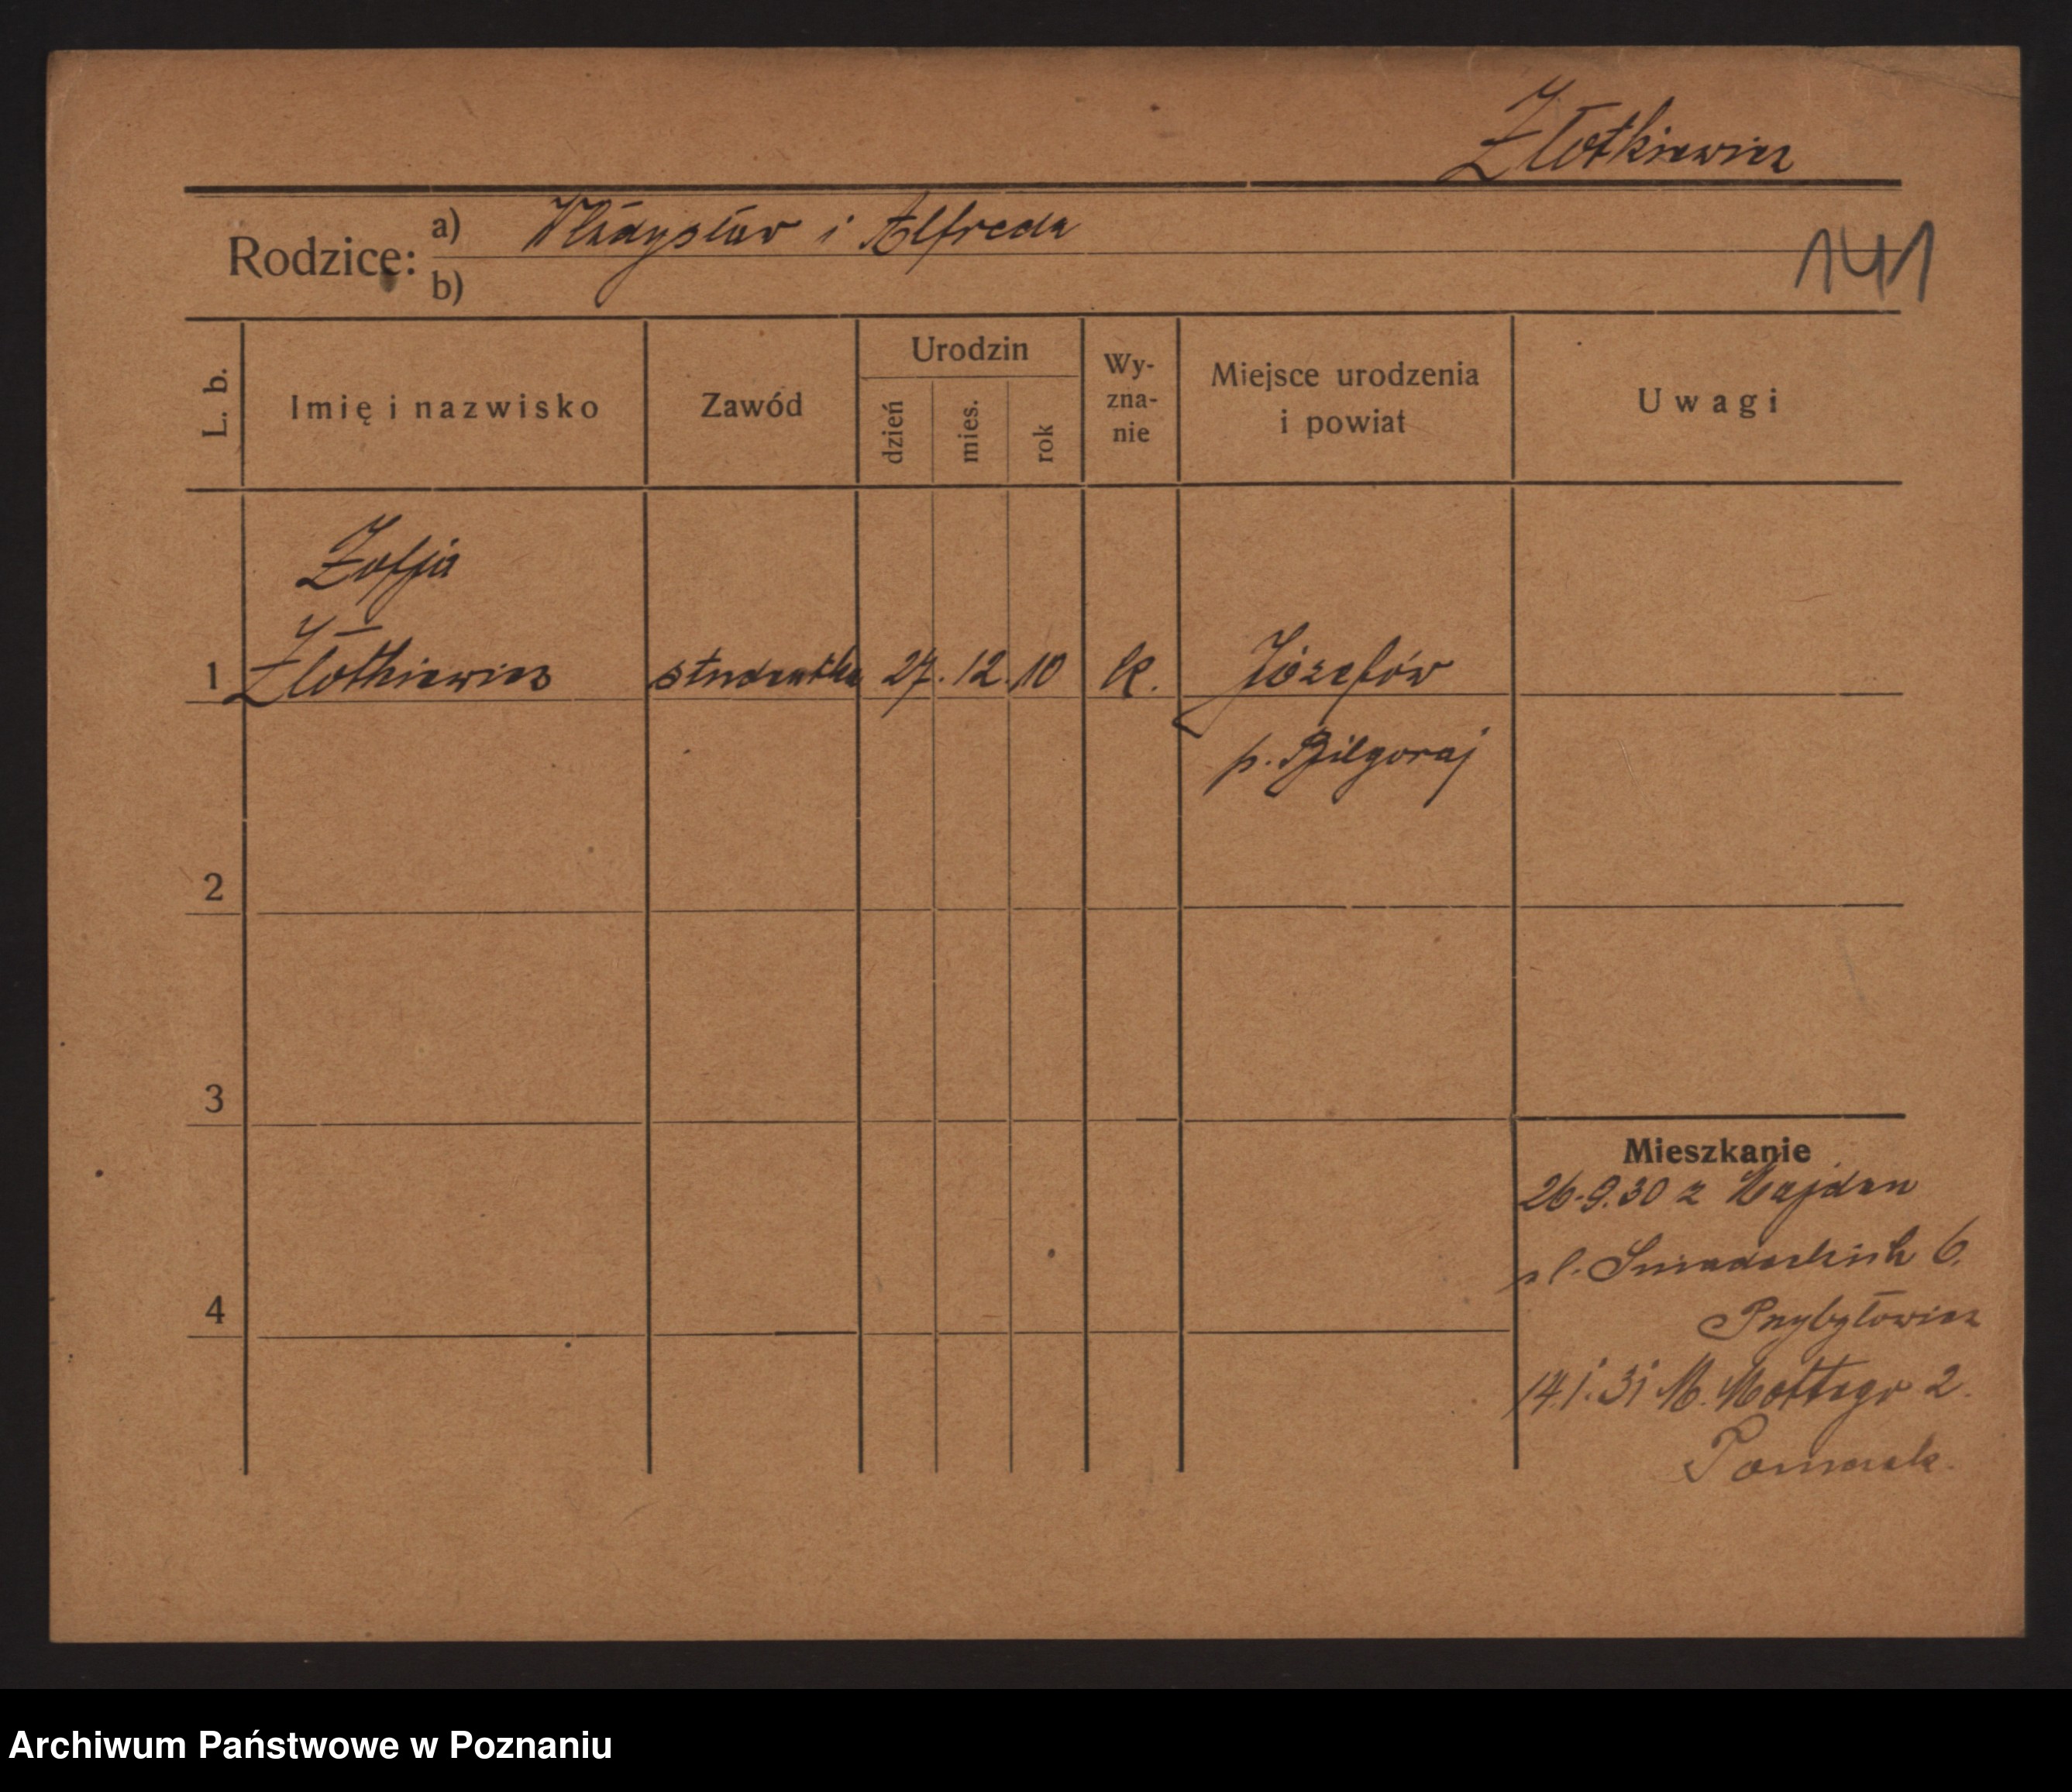 Złotkiewicz
Rodzice:
a) Władysław i Alfreda
b)
141
L. b.
Imię i nazwisko
Zawód
Urodzin
dzień
mies.
rok
Wy-
zna-
nie
Miejsce urodzenia
i powiat
Uwagi
Zofja
1 Złotkiewicz studentka 27. 12. 10 k. Józefów
p. Biłgoraj
2
3
4
Mieszkanie
26.9.30 z Majdan
Śniadeckich 6.
Przybyłowicz
14.1.31 M. Mottego 2.
Archiwum Państwowe w Poznaniu